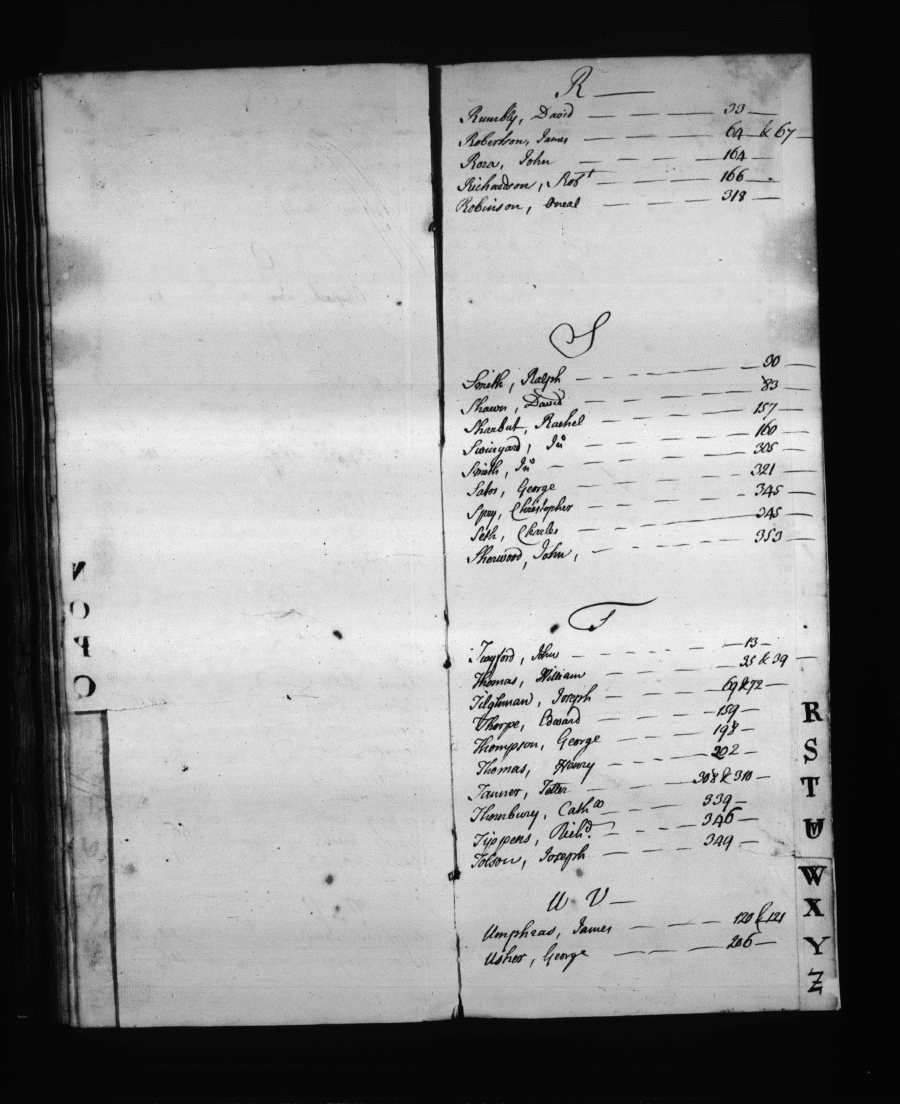 R
Rumbly, David 33
Robertson, James 64 & 67
Roza, John 164
Richardson, Robt 166
Robinson, Oneal 318
S
Smith, Ralph 30
Shawn, David 83
Sharbut, Rachel 157
Swinyard, Jno 160
Smith, Jno 305
George 321
Spry, Christopher 345
Seth, Charles 345
Sherwood, John, 353
T
Twyford, John 13
Thomas, William 35 & 39
Tilghman, Joseph 69 & 72
Thorpe, Edward 159
Thompson, George 198
Thomas, Henry 202
Tanner, 308 & 310
Thornbury, Cath 339
Tippens, Richd. 346
Tolson, Joseph 349
U V
Umphras, James 120 & 121
Usher, George 206
N
O
P
Q
R
S
T
W
X
Y
Z